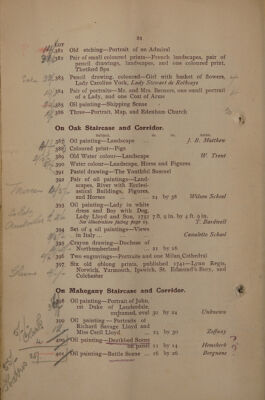 22
LOT
381 Old etching—Portrait of an Admiral
382 Pair of small coloured prints—French landscapes, pair of
pencil drawings, landscapes, and one coloured print,
Thetford Spa
383 Pencil drawing, coloured—Girl with basket of flowers,
Lady Caroline York, Lady Stewart de Rothsaye
384 Pair of portraits—Mr. and Mrs. Benners, one small portrait
of a Lady, and one Coat of Arms
385 Oil painting—Shipping Scene
386 Three—Portrait, Map, and Edenham Church
On Oak Staircase and Corridor.
387 Oil painting—Landscape ... J. B. Matthew
388 Coloured print—Pigs
389 Old Water colour—Landscape W. Trent
390 Water colour—Landscape, Horse and Figures
391 Pastel drawing—The Youthful Bassnel
392 Pair of oil paintings—Land-
scapes, River with Eccles-
astical Buildings, Figures,
and Horses ... 22 by 38 Wilson School
393 Oil painting—Lady in white
dress and Boy with Dog,
Lady Lloyd and Son, 1792 7 ft. 9 in. by 4 ft. 9 in.
See illustration facing page 22 T. Bardwell
394 Set of 4 oil paintings—Views
in Italy ... Canaletto School
395 Crayon drawing—Duchess of
Northumberland 21 by 26
396 Two engravings—Portraits and one Milan Cathedral
397 Six old oblong prints, published 1741—Lynn Regis,
Norwich, Yarmouth, Ipswich, St. Edmund's Bury, and
Colchester
On Mahogany Staircase and Corridor.
398 Oil painting—Portrait of John,
1st Duke of Lauderdale,
unframed, oval 30 by 24 Unknown
399 Oil painting — Portraits of
Richard Savage Lloyd and
Miss Cecil ... 25 by 30 Zoffany
400 Oil painting—Deathbed Scene
on panel 11 by 14 Hemskerk
401 Oil painting—Battle Scene ... 16 by 26 Borgnone